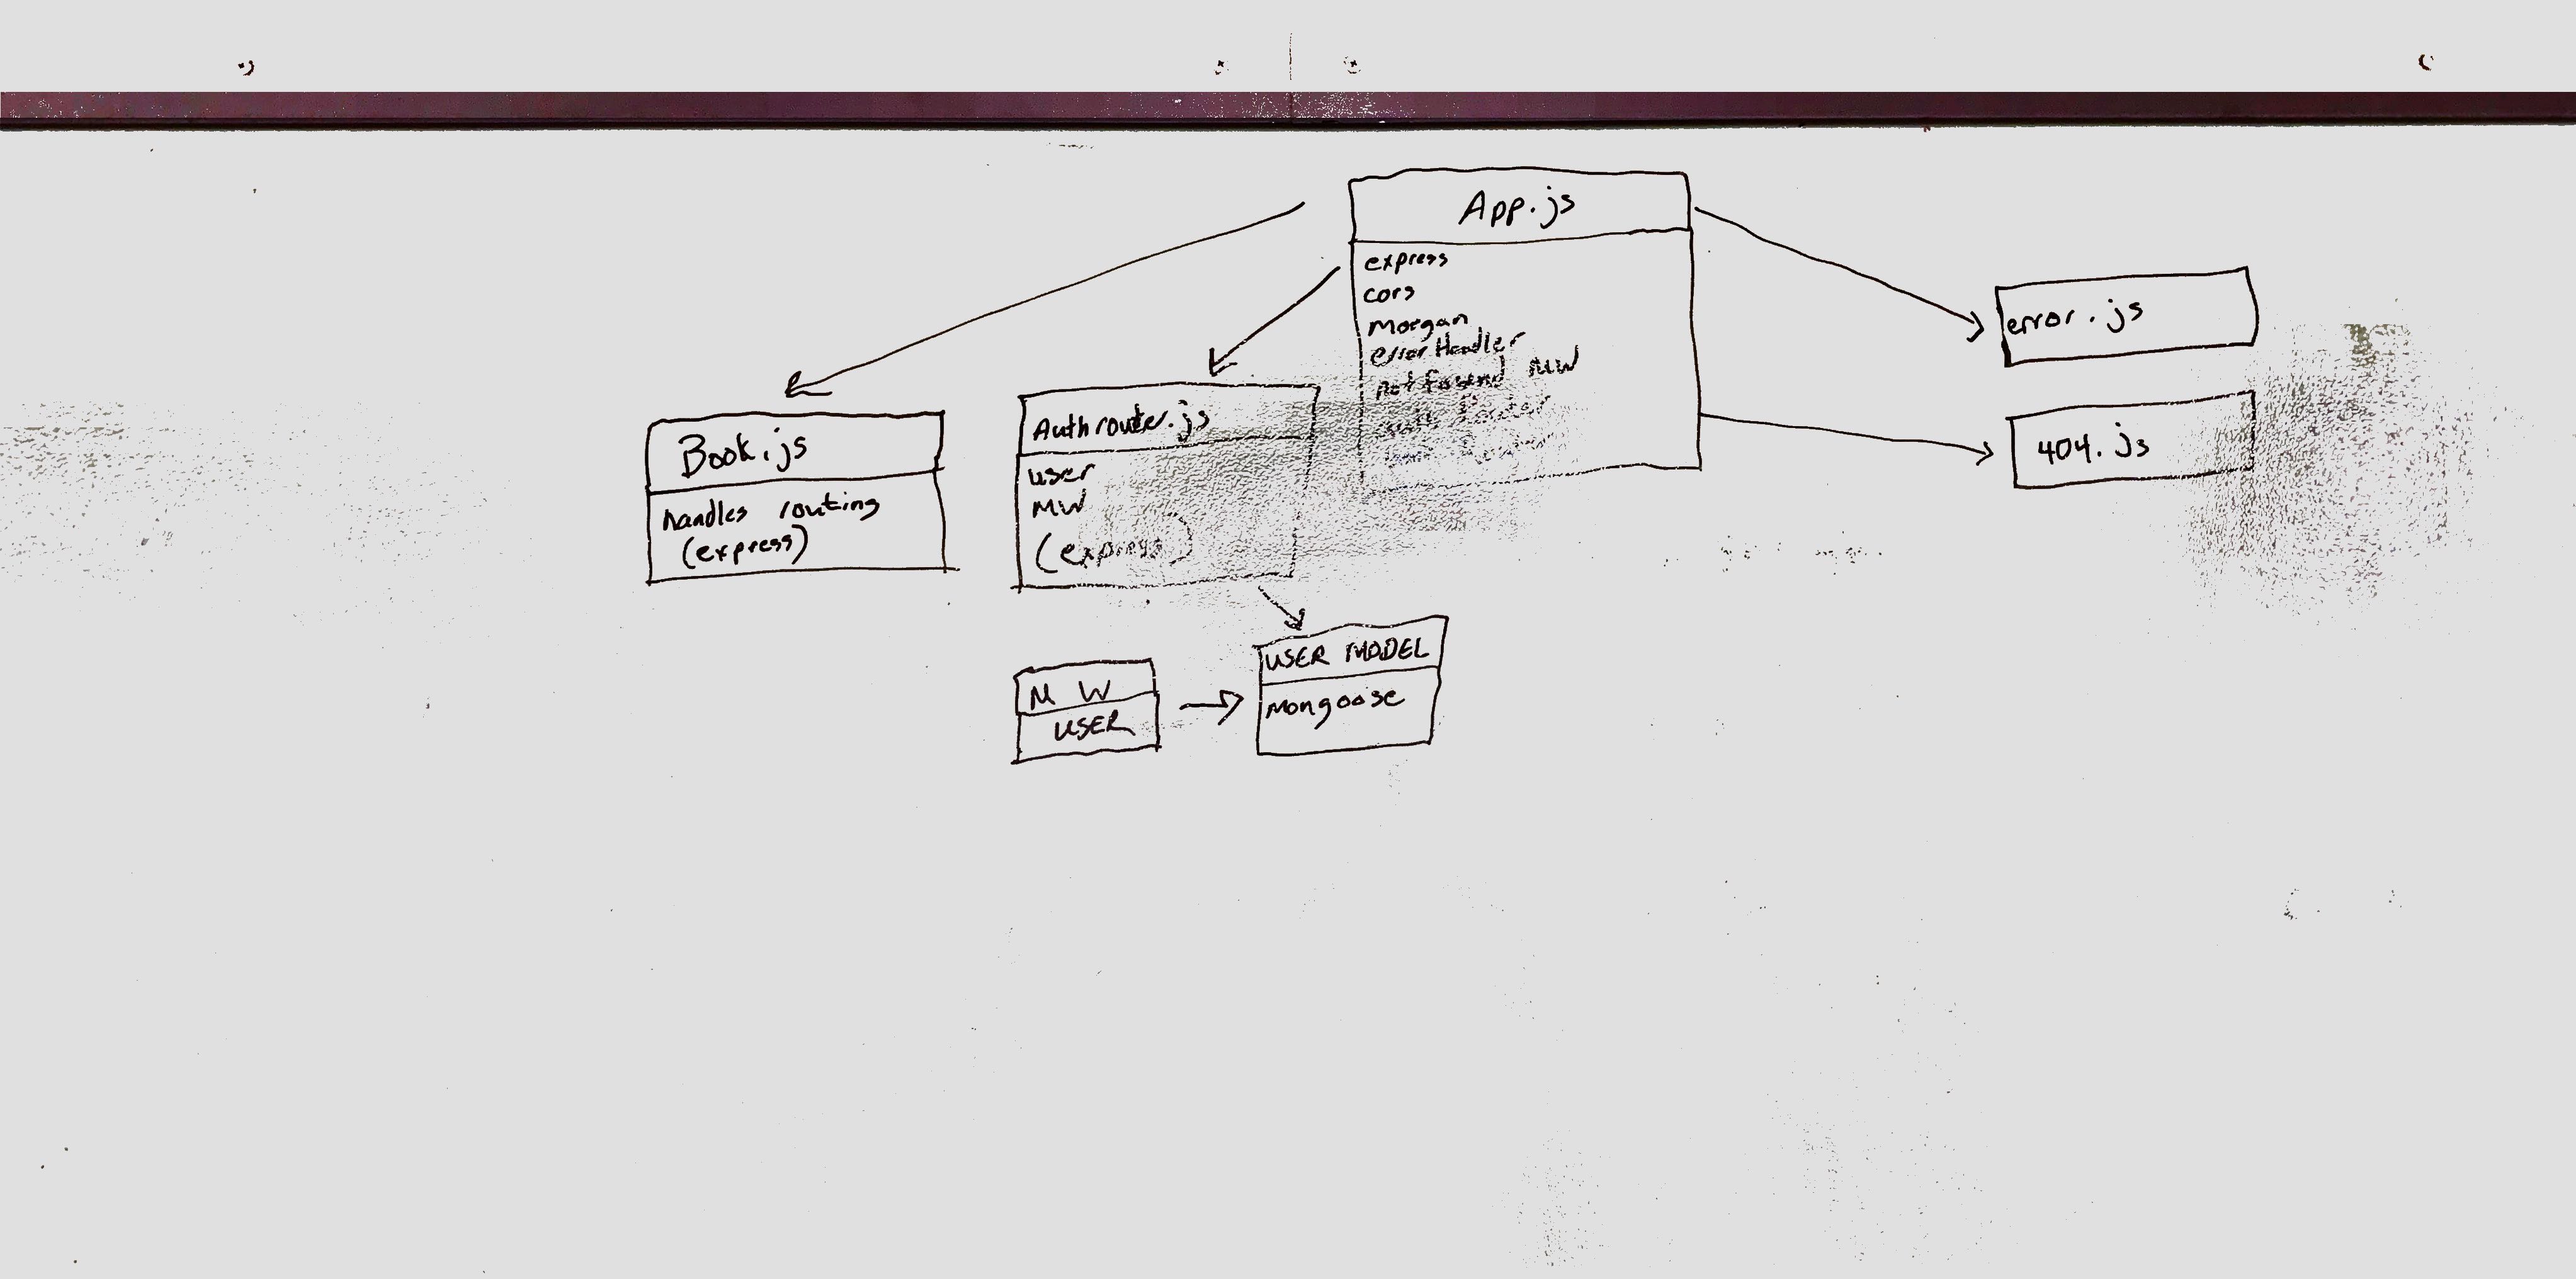 App.js
express
cors
Morgan
error Handler
not found MW
error.js
404.js
Book.js
handles routing
(express)
Auth router.js
user
MW
(express)
M W
USER
USER MODEL
Mongoose